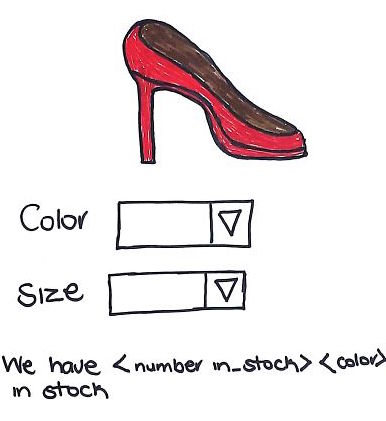 Color
Size
We have <number in_stock> <color>
in stock